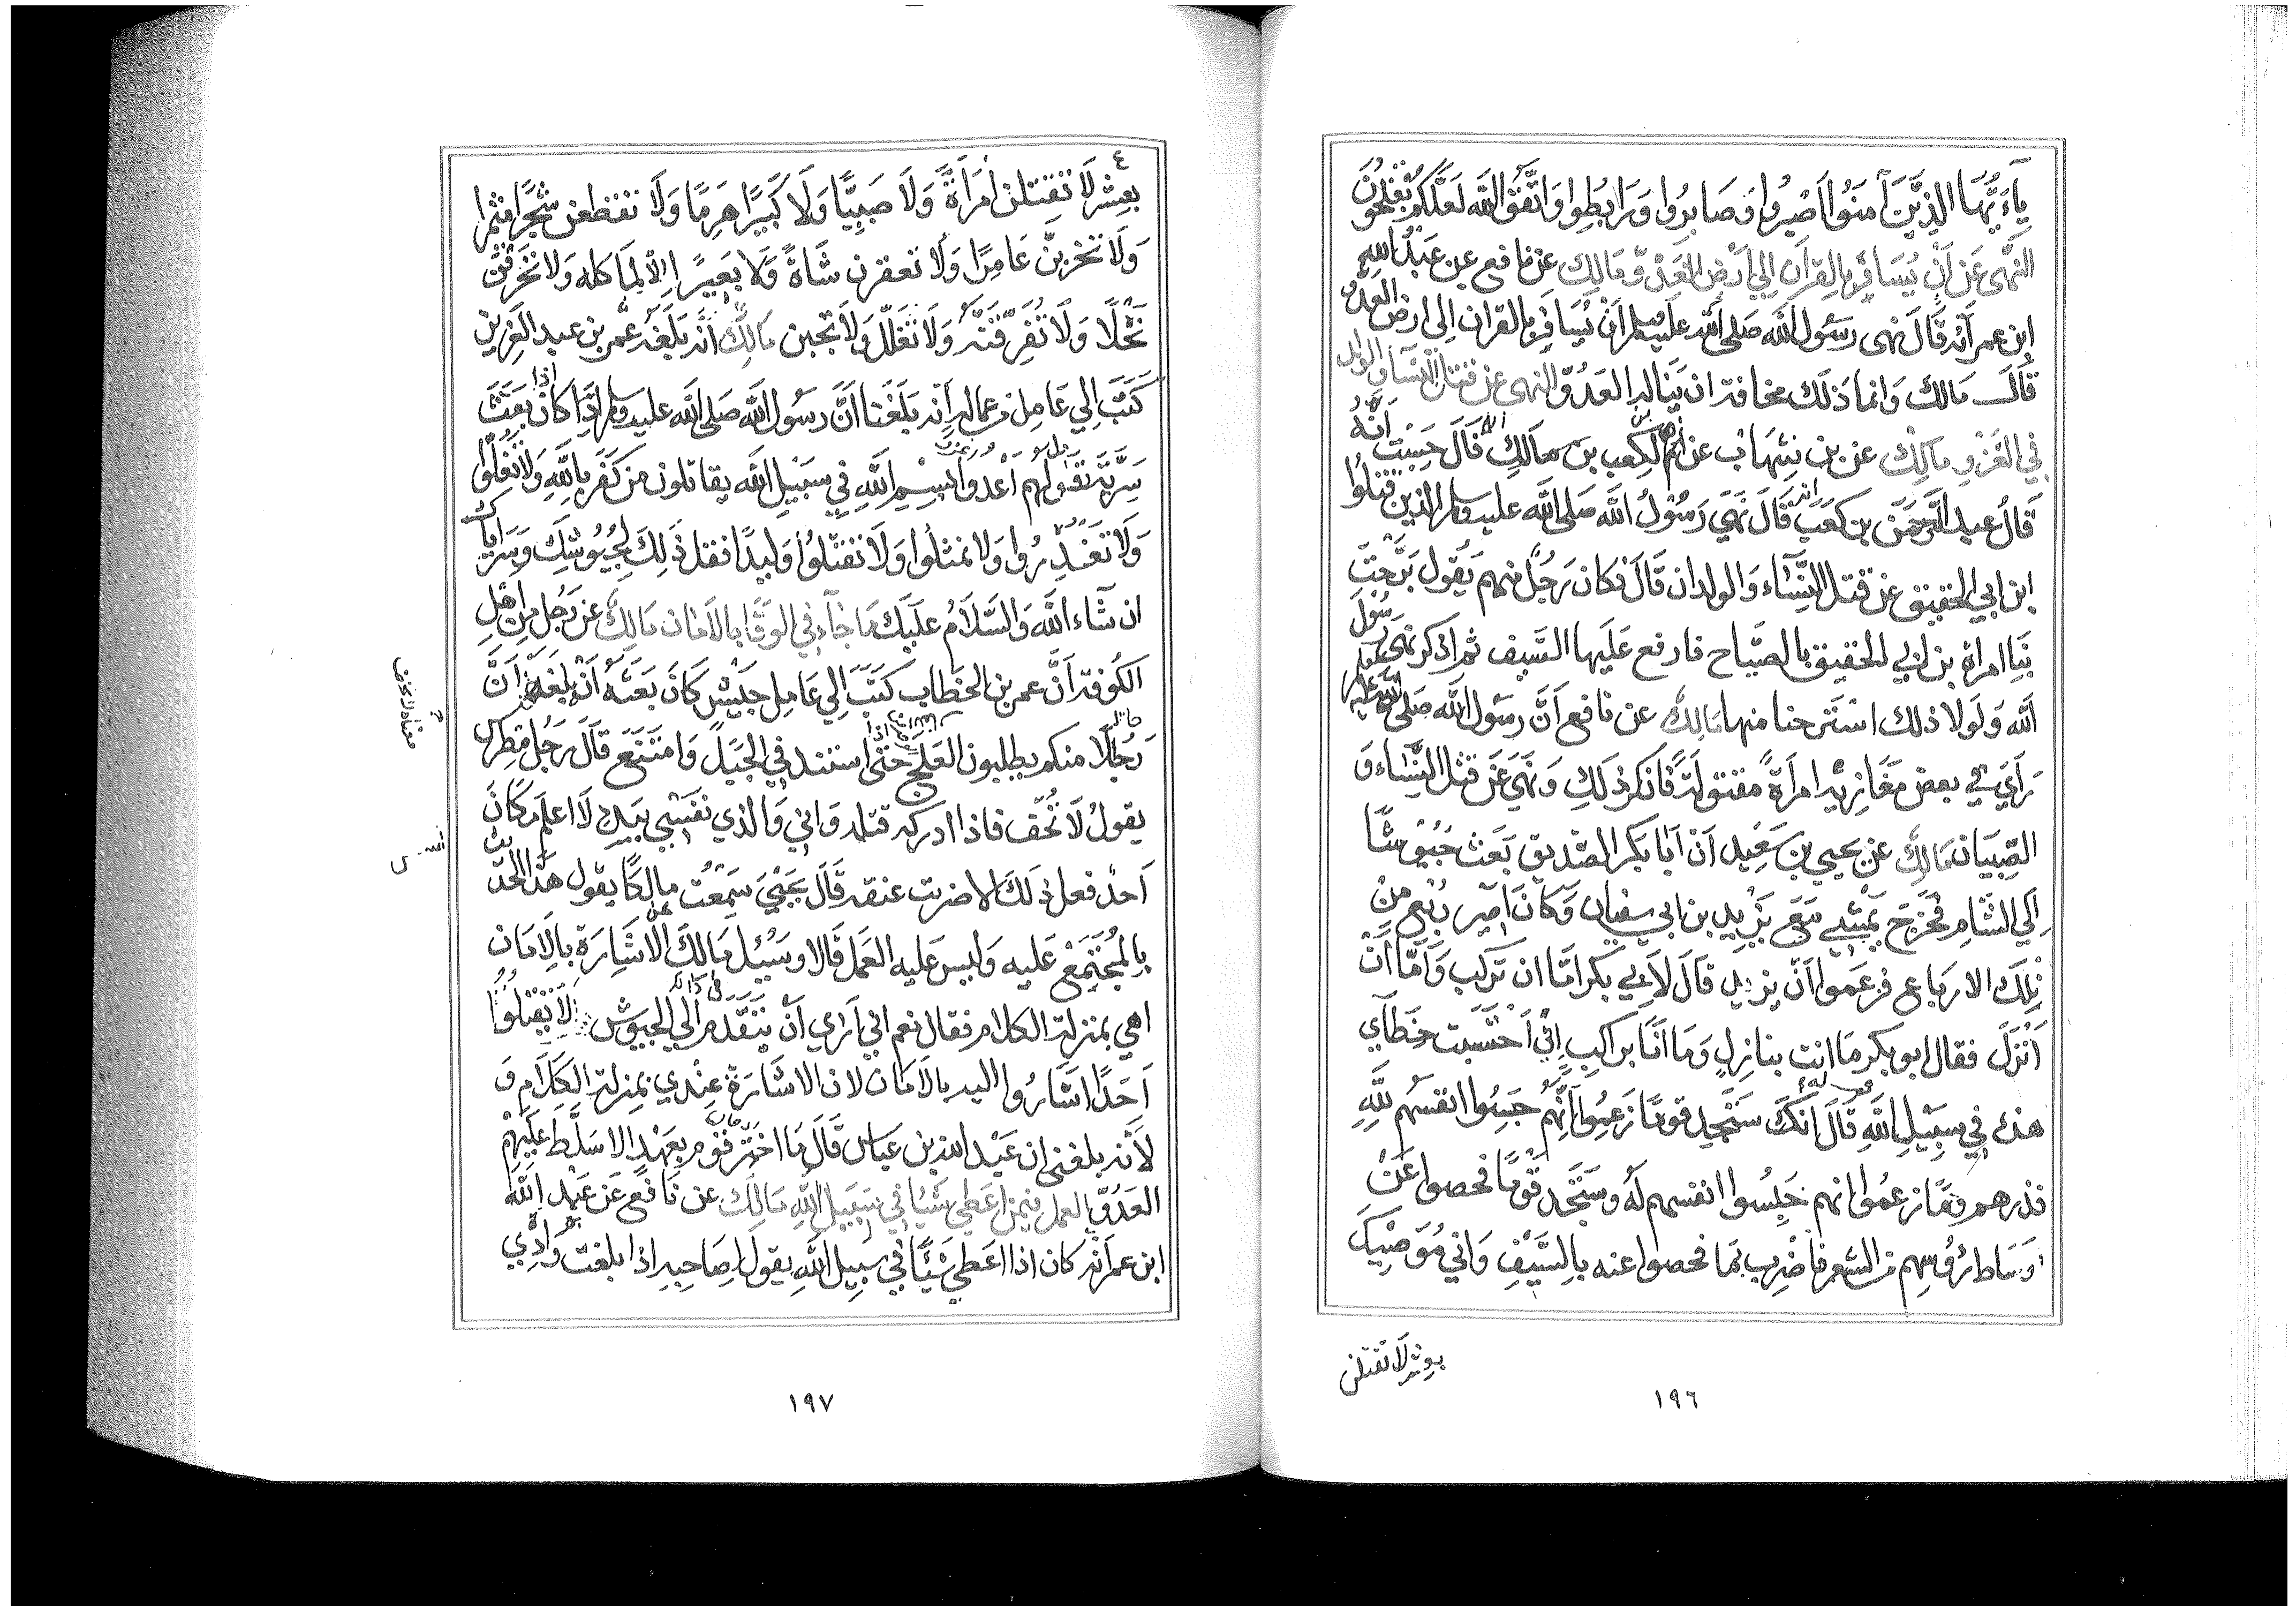 يٰأَيُّهَا الَّذِيْنَ آمَنُوا اصْبِرُوا وَصَابِرُوا وَرَابِطُوا وَاتَّقُوْا اللَّهَ لَعَلَّكُمْ تُفْلِحُوْنَ
النَّهى عَنْ اَنْ يُسَافِرَ بِالقران اِلي اَرْضِ العَدُوِّ مَالِك عَنْ نافع عن عَبْدُ اللهِ
ابن عمر اَنه قَالَ نهى رسُول الله صَلى الله عليه وسلم اَنْ يُسَافر بالقران اِلى ارض العدو
قال مَالك وَانما ذلك مخافة ان يناله العَدُوّ النهى عن قتل النسآ والولد
في الغَزْو مالِك عن بن شِهَاب عن ابن لكعب بن مالِك قَالَ حَسِبْت اَنَّهُ
قَالَ عبد الرحمن بن كعب انه قَالَ نَهَي رَسُوْلُ الله صَلى الله عليه وسلم الذين قتلوا
ابن ابي الحقيق عن قتل النِّسَاء وَالولدان قَالَ فكان رَجُل منهم يَقول بَرَّحَتْ
بِنَا امراة بن ابي الحقيق بالصِّيَاح فارفع عَلَيها السَّيف ثم اذكر نهى رسُول
الله وَلَولا ذلك اسْتَرحنا منها مَالِك عن نافع اَنَّ رسُول الله صَلى الله عليه
رَآي في بعض مَغَازيه امرَاَةً مقتولة فَاَنكر ذلِك وَنَهَي عَنْ قتل النِّسَاء وَ
الصِّبيَان مَالِك عن يحيي بن سَعِيد اَن اَبا بَكر الصّديق بَعَث جُيُوْشًا
اِلي الشَّامِ فَخَرَجَ يَمْشِي مَعَ يَزْيد بن ابي سفيان وَكَانَ اَمير رُبْع مِنْ
تِلكَ الارباع فزعموا اَنّ يزيد قال لاَبي بَكر امَّا ان تركب وَاَمَّا اَنْ
اَنْزِلَ فقال ابو بكر مَا انت بنازِلٍ وَمَا اَنَا براكِبٍ اِنّي اَحْتَسِبُ خطَآي
هذه في سَبِيْلِ اللهِ قَالَ انّكَ سَتجد قومًا زَعمُوا اَنَّهُمْ حبسُوا انفسَهم لِلَّهِ
فذرهم ومَا زعمُوا انهم حَبسُوا انفسهم لَه وَسَتجد قومًا فحصوا عَنْ
اَوسَاط رُؤُسِهم من الشعر فاضْرب مَا فحصوا عنه بالسَّيْفِ وَاني مُوْصِيْكَ
بعشر لا تقتلن
١٩٦
بعشر لَا تَقْتلن اَمرَاَةً وَلَا صَبِيًّا وَلَا كَبِيْرًا هَرِمًا وَلَا تقطعن شَجَرًا مثمرا
وَلَا تخربَنّ عَامِرًا وَلَا تعقرن شَاةً وَلا بَعِيْرًا اِلاّ لِمَاكله وَلا تحَرِّقَنَّ
نَخْلًا وَلَا تُفَرِّقَنَّه وَلَا تَغْلُل وَلا تجبن مَالِك اَنَّه بَلَغَه عُمر بن عبد العَزيز
كَتَبَ اِلي عَامِل من عماله اَنه بَلَغَنا اَنَّ رسُول الله صَلى الله عليه وسلم اِذَا كَانَ بعَثَ
سَرِيَّة يَقوْلُ لهم اغزوا بِسْمِ اللَّهِ في سَبِيْل اللَّه يقاتلون من كَفَرَ باللَّهِ وَلَا تَغُلّوا
وَلَا تَغْدِرُوا وَلا تمثلوا وَلَا تَقتلُوا وَلِيدًا فقل ذلِكَ لجُيُوشك وَسَراياك
ان شَآءَ الله وَالسَّلَامُ عَلَيك مَا جَاءَ في الوَفَا بالاَمَان مَالِك عن رَجُل من اَهل
الكُوفة اَنَّ عمر بن الخطاب كَتَبَ اِلي عَامِل جَيْش كَانَ بَعَثَه اَنَّه بَلَغَني اَنَّ
رجَالًا منكم يطلبون العِلْج حَتّى اذا استند في الجَبَل وَامتَنَعَ قَالَ رَجُل مطرس
يقولُ لَا تَخَف فاذا ادركه قتله وَاني وَالذي نفسي بيَده لَا اعلَم مكَانَ
اَحد فعل ذلِكَ الا ضربت عنقه قَالَ يَحْيَي سَمِعْت مالِكًا يقول هذا الحديث
بِالمُجْتَمَع عَليه وَليس عليه العَمَل قَال وَسُئِل مَالك عن الاِشَارَة بالاَمَان
اهي بمنزلة الكلام فقال نعم اني اَرَي اَنْ يَتَقَدَّم اِلي الجيوش في ذلك لَا يقتلوا
اَحَدًا اَشَارُوا اليه بالاَمَان لان الاشَارَة عِنْدي بمنزلة الكَلَام وَ
لاَنه بلغني ان عَبْد الله بن عَباس قَالَ مَا اخْتَر قوم بعَهْد الا سَلّط عَلَيْهم
العَدُوّ العمل فيمن اَعطي شَيْئًا في سَبِيْل الله مَالك عن نَافع عَنْ عَبْد الله
ابن عمر اَنه كان اذا اعَطي شَيْئًا في سَبيل اللهِ يقول لِصَاحِبه اذا بلغت وَادِي
معناه لا تخف
١٩٧